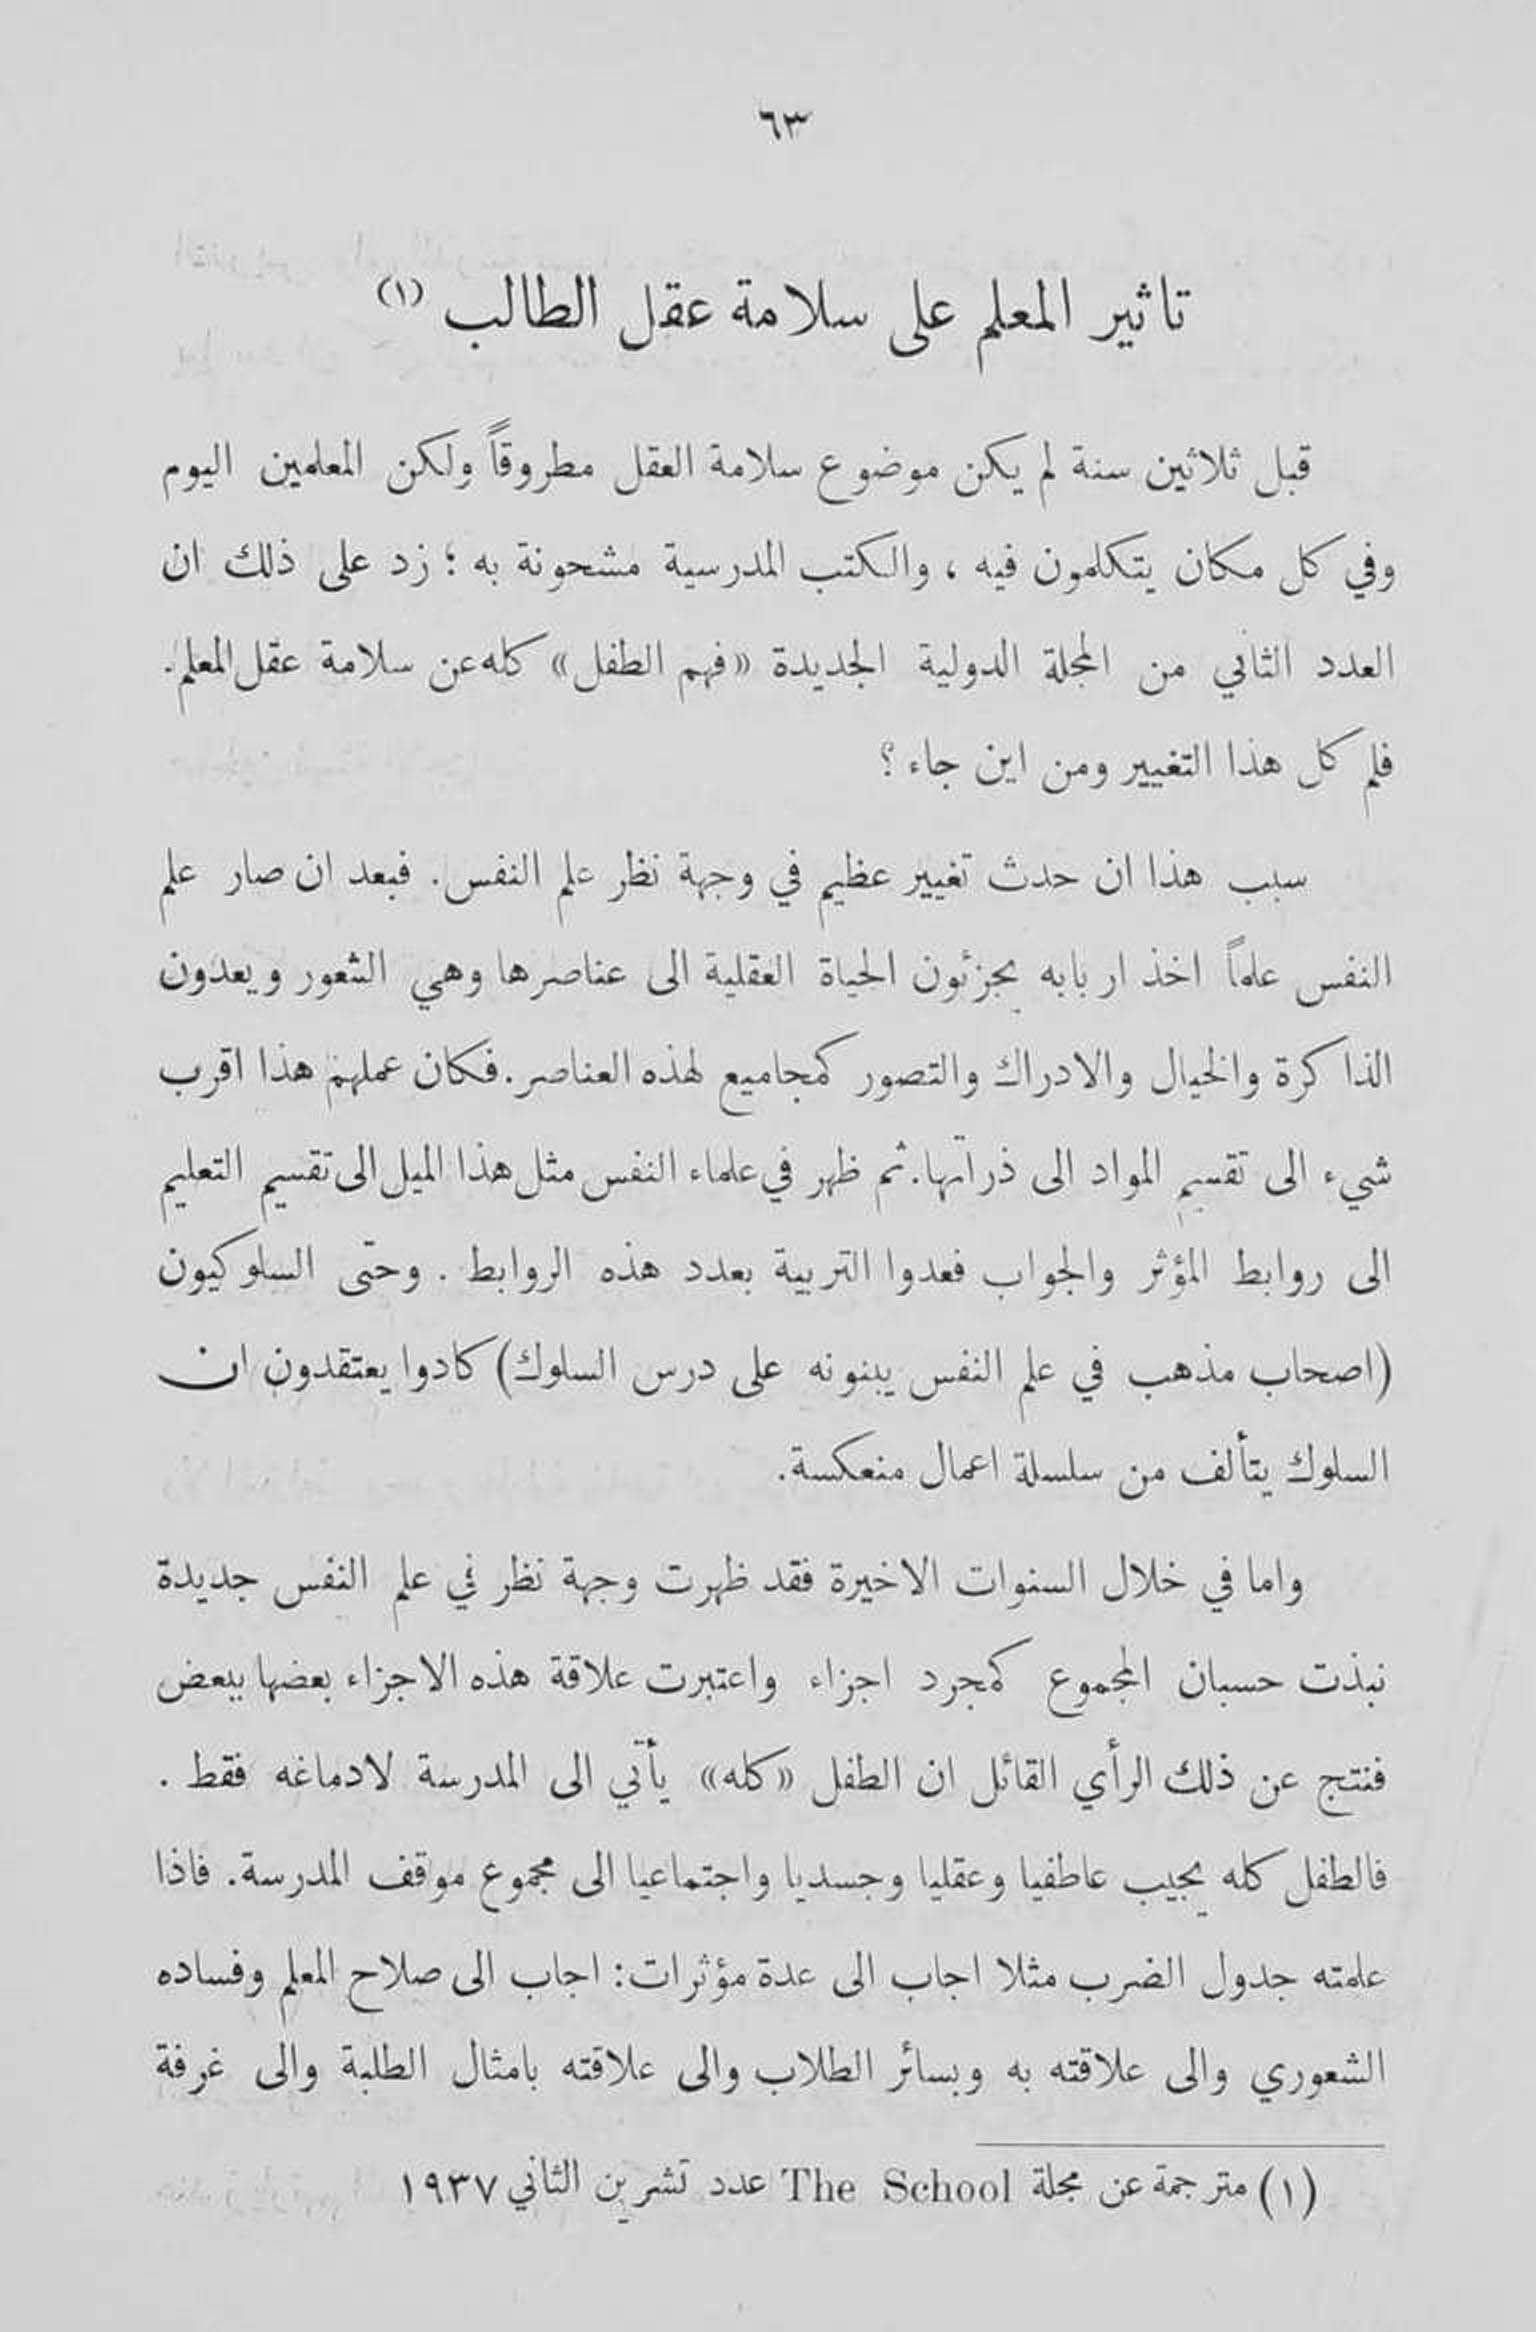 ٦٣
تاثير المعلم على سلامة عقل الطالب (١)
قبل ثلاثين سنة لم يكن موضوع سلامة العقل مطروقاً ولكن المعلمين اليوم
وفي كل مكان يتكلمون فيه ، والكتب المدرسية مشحونة به ؛ زد على ذلك ان
العدد الثاني من المجلة الدولية الجديدة «فهم الطفل» كله عن سلامة عقل المعلم.
فلم كل هذا التغيير ومن اين جاء ؟
سبب هذا ان حدث تغيير عظيم في وجهة نظر علم النفس . فبعد ان صار علم
النفس علماً اخذ اربابه يجزئون الحياة العقلية الى عناصرها وهي الشعور ويعدون
الذاكرة والخيال والادراك والتصور كمجاميع لهذه العناصر . فكان عملهم هذا اقرب
شيء الى تقسيم المواد الى ذراتها . ثم ظهر في علماء النفس مثل هذا الميل الى تقسيم التعليم
الى روابط المؤثر والجواب فعدوا التربية بعدد هذه الروابط . وحتى السلوكيون
(اصحاب مذهب في علم النفس يبنونه على درس السلوك) كادوا يعتقدون ان
السلوك يتألف من سلسلة اعمال منعكسة .
واما في خلال السنوات الاخيرة فقد ظهرت وجهة نظر في علم النفس جديدة
نبذت حسبان المجموع كمجرد اجزاء واعتبرت علاقة هذه الاجزاء بعضها ببعض
فنتج عن ذلك الرأي القائل ان الطفل «كله» يأتي الى المدرسة لا دماغه فقط .
فالطفل كله يجيب عاطفيا وعقليا وجسديا واجتماعيا الى مجموع موقف المدرسة . فاذا
علمته جدول الضرب مثلا اجاب الى عدة مؤثرات : اجاب الى صلاح المعلم وفساده
الشعوري والى علاقته به وبسائر الطلاب والى علاقته بامثال الطلبة والى غرفة
(١) مترجمة عن مجلة The School عدد تشرين الثاني ١٩٣٧